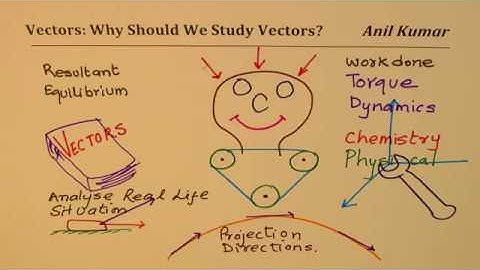 Vectors: Why Should We Study Vectors?
Anil Kumar
Resultant
Equilibrium
VECTORS
Analyse Real Life
Situation
C
Projection
Directions.
Workdone
Torque
Dynamics
Chemistry
Physical